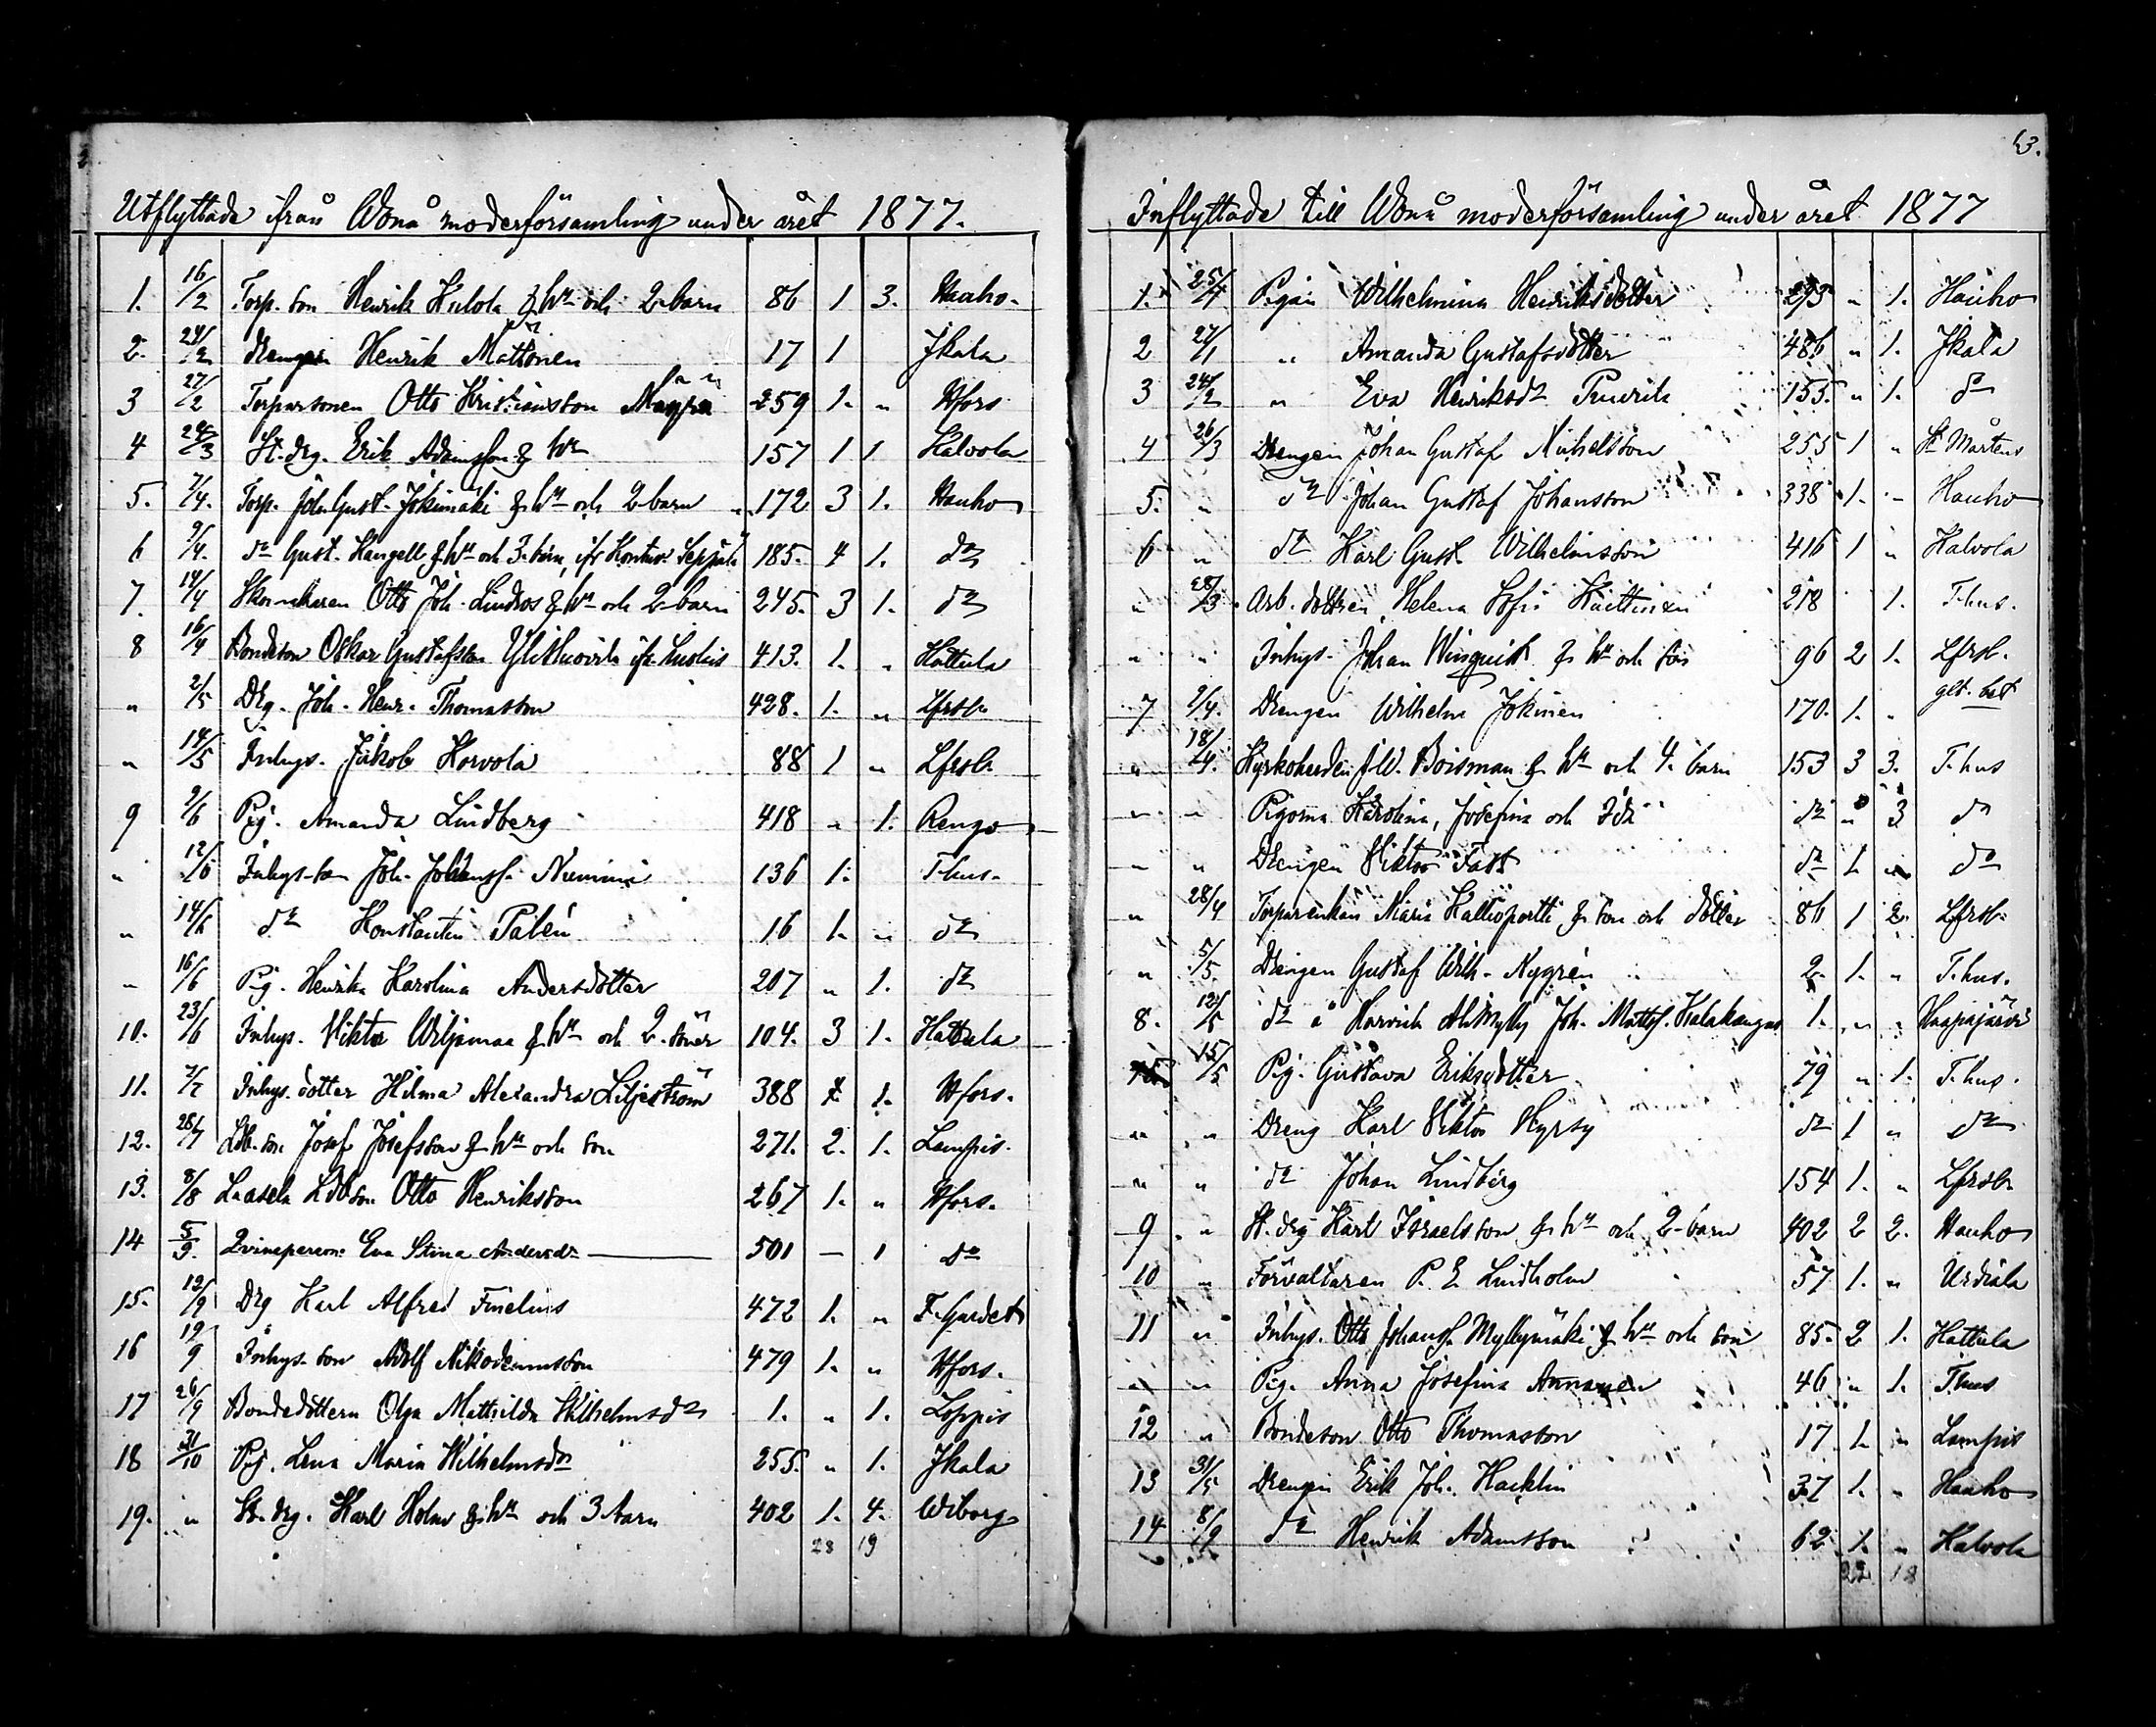 63.
Utflyttade ifrån Wånå moderförsamling under året 1877.
1. 16/2 Torp. son Henrik Hulola & hu och 2 barn 86 1 3. Hauho.
2. 24/2 Drengen Henrik Mattonen 17 1 Jkala
3 27/2 Torparsonen Otto Kristiansson 259 1. " Hfors
4 24/3 St. drg. Erik Adamsson & hu 157 1 1 Kalvola
5. 7/4. Torp. Joh. Gust. Jokimäki & hu och 2 barn 172 3 1. Hauho
6 9/4. do Gust. Hangell & hu och 3 barn, ifr 185. 4 1. do
7. 14/4 Skomakaren Otto Joh. Lindros & hu och 2 barn 245. 3 1. do
8 16/4 Bondeson Oskar Gustafsson ifr 413. 1. " Hattula
" 2/5 Drg. Joh. Henr. Thomasson 428. 1. " Lfrsb.
" 14/5 Inhys. Jakob Horvola 88 1 " Lfrsb.
9 9/6 Pig. Amanda Lindberg 418 " 1. Rengo
" 12/6 Inhys. son Joh. Johanss. Nieminen 136 1. T.hus.
" 14/6 do Konstantin Palén 16 1. " do
" 16/6 Pig. Henrika Karolina Andersdotter 207 " 1. do
10. 23/6 Inhys. Viktor Wiljamaa & hu och 2 söner 104. 3 1. Hattula
11. 2/7 Inhys. dotter Hilma Alexandra Liljeström 388 1. Hfors.
12. 28/7 Ldb. son Josef Josefsson & hu och son 271. 2. 1. Lampis.
13. 8/8 Laasela Ldbson Otto Henriksson 267 1. " Hfors.
14 5/9. Qvinsperson: Eva Stina Andersdr 501 — 1 do
15. 12/9 Drg Karl Alfred Finelius 472 1. " F. Gardet
16 19/9 Inhys. son Adolf Nikodemusson 479 1. " Hfors.
17 26/9 Bondedottern Olga Mathilda Wilhelmsdr 1. " 1. Loppis
18 31/10 Pig. Lena Maria Wilhelmsdr 255. " 1. Jkala
19. " St. drg. Karl Holm & hu och 3 barn 402 1. 4. Wiborg
28 19
Inflyttade till Wånå moderförsamling under året 1877
1. 25/4 Pigan Wilhelmina Henriksdotter 293 " 1. Hauho
2 27/1 " Amanda Gustafsdotter 486 " 1. Jkala
3 24/2 " Eva Henriksdr 155. " 1. do
4 26/3 Drengen Johan Gustaf Mickelsson 255 1 " St Mårtens
5. " do Johan Gustaf Johansson 338 1. " Hauho
6 " do Karl Gust. Wilhelmsson 416 1 " Kalvola
" 28/3 Arb. dottren Helena Sofia 218 1. T.hus.
" " Inhys. Johan Winquist & hu och son 96 2 1. Lfrsb.
7 2/4. Drengen Wilhelm Jokinen 170. 1. " glt. bet
" 18/4. Kyrkoherden J. W. Boisman & hu och 4 barn 153 3 3. T.hus
" " Pigorna Karolina, Josefina och Ida do " 3 do
" " Drengen Viktor Fast do 1 " do
" 28/4 Torparenkan Maria Kallioportti & son och dotter 86 1 2. Lfrsb.
" 5/5. Drengen Gustaf Wilh. Nygrén 2. 1. " T.hus.
8. 12/5 do å Harvich Alimylly Joh. Mattss. Kalakangas 1. " " Haapajärvi
15/5 Pig. Gustava Eriksdotter 79 " 1. T.hus.
" " Dreng Karl Viktor Hyrsy do 1 " do
" " do Johan Lindberg 154 1. " Lfrsb.
9 " St. drg Karl Israelsson & hu och 2 barn 402 2 2. Hauho
10 " Förvaltaren P. E. Lindholm 57 1. " Urdiala
11 " Inhys. Otto Johanss. Myllymäki & hu och son 85. 2 1. Hattula
" " Pig. Anna Josefina Annanen 46 " 1. T.hus
12 " Bondeson Otto Thomasson 17 1. " Lampis
13 31/5 Drengen Erik Joh. Hacklin 37 1. " Hauho
14 8/9 do Henrik Adamsson 62 1. " Kalvola
22 18